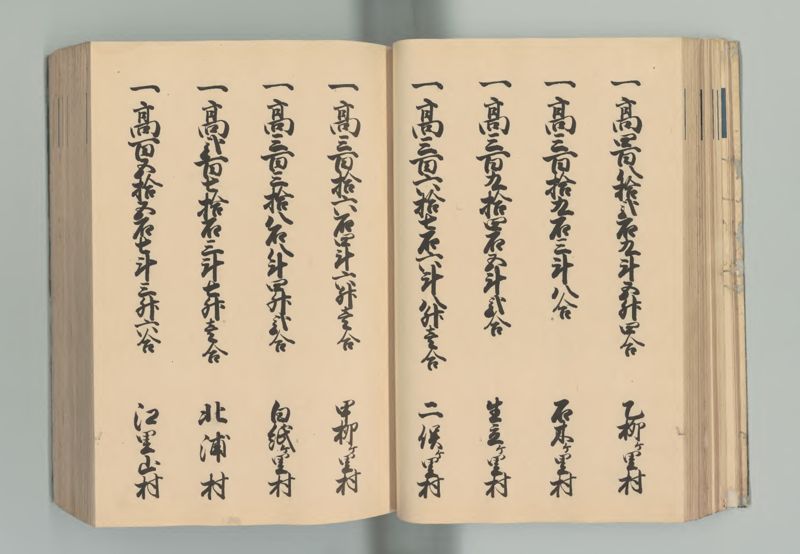 一高四百八拾弐石九斗五升四合 乙柳ケ里村
一高三百拾九石三斗八合 石木ケ里村
一高三百九拾四石五斗弐合 生立ケ里村
一高三百六拾七石六斗八升壱合 二俣ケ里村
一高三百拾六石四斗六升壱合 甲柳ケ里村
一高三百三拾八石八斗四升弐合 白紙ケ里村
一高弐百七拾石三斗七升壱合 北浦村
一高百五拾五石七斗三升六合 江里山村